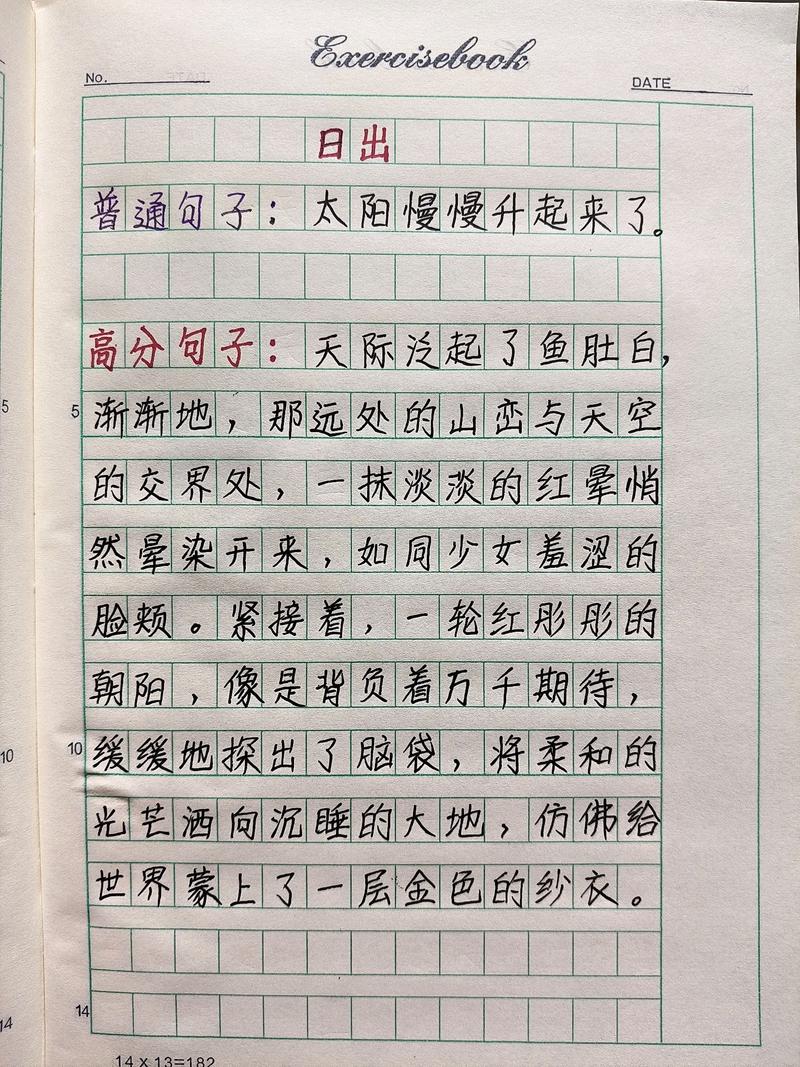 Exercisebook
No.
DATE
日出
普通句子：太阳慢慢升起来了。
高分句子：天际泛起了鱼肚白，
5
渐渐地，那远处的山峦与天空
的交界处，一抹淡淡的红晕悄
然晕染开来，如同少女羞涩的
脸颊。紧接着，一轮红彤彤的
朝阳，像是背负着万千期待，
10
缓缓地探出了脑袋，将柔和的
光芒洒向沉睡的大地，仿佛给
世界蒙上了一层金色的纱衣。
14
14×13=182
5
10
14